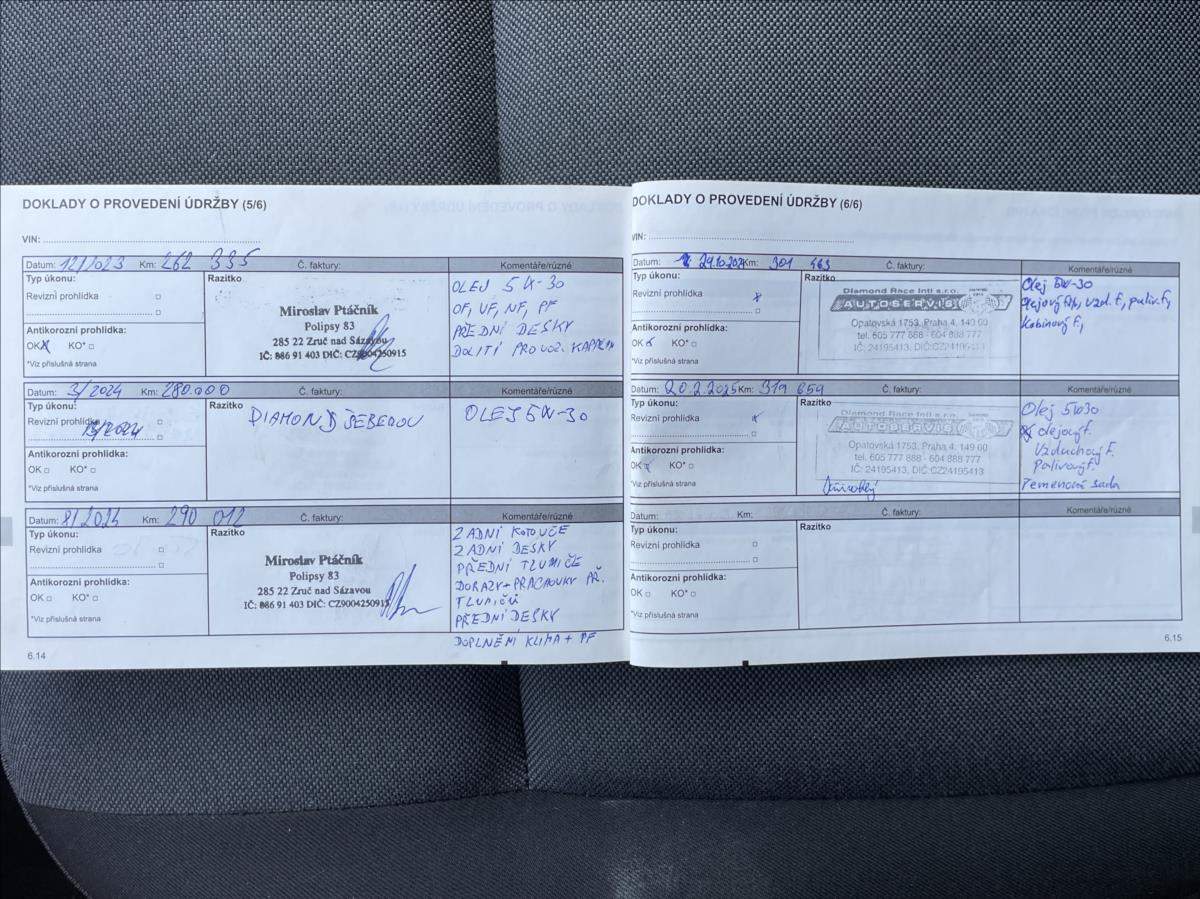 DOKLADY O PROVEDENÍ ÚDRŽBY (5/6)
VIN:
Datum: 12/2023 Km: 262 335 Č. faktury: Komentáře/různé
Typ úkonu:
Revizní prohlídka
Antikorozní prohlídka:
OK KO*
*Viz příslušná strana
Razítko
Miroslav Ptáčník
Polipsy 83
285 22 Zruč nad Sázavou
IČ: 886 91 403 DIČ: CZ9004250915
OLEJ 5W-30
OF, VF, NF, PF
PŘEDNÍ DESKY
DOLITÍ PROVOZ. KAPALIN
Datum: 3/2024 Km: 280.000 Č. faktury: Komentáře/různé
Typ úkonu:
Revizní prohlídka
Antikorozní prohlídka:
OK KO*
*Viz příslušná strana
Razítko
DIAMOND ŠEBEROV
OLEJ 5W-30
Datum: 8/2024 Km: 290 012 Č. faktury: Komentáře/různé
Typ úkonu:
Revizní prohlídka
Antikorozní prohlídka:
OK KO*
*Viz příslušná strana
Razítko
Miroslav Ptáčník
Polipsy 83
285 22 Zruč nad Sázavou
IČ: 886 91 403 DIČ: CZ9004250915
ZADNÍ KOTOUČE
ZADNÍ DESKY
PŘEDNÍ TLUMIČE
DORAZY+PRACHOVKY PŘ.
TLUMIČŮ
PŘEDNÍ DESKY
DOPLNĚNÍ KLIMA + PF
6.14
DOKLADY O PROVEDENÍ ÚDRŽBY (6/6)
VIN:
Datum: 29.10.2024 Km: 301 463 Č. faktury: Komentáře/různé
Typ úkonu:
Revizní prohlídka
Antikorozní prohlídka:
OK KO*
*Viz příslušná strana
Razítko
Diamond Race Intl s.r.o.
AUTOSERVIS
Opatovská 1753, Praha 4, 149 00
tel. 605 777 888 - 604 888 777
IČ: 24195413, DIČ:CZ24195413
Olej 5W-30
olejový f., vzd. f., paliv. f,
Kabinový f,
Datum: 20.2.2025 Km: 319 659 Č. faktury: Komentáře/různé
Typ úkonu:
Revizní prohlídka
Antikorozní prohlídka:
OK KO*
*Viz příslušná strana
Razítko
Diamond Race Intl s.r.o.
AUTOSERVIS
Opatovská 1753, Praha 4, 149 60
tel. 605 777 888 - 604 888 777
IČ: 24195413, DIČ:CZ24195413
Olej 5W30
olejový f.
Vzduchový f.
Palivový f.
Řemenová sada
Datum: Km: Č. faktury: Komentáře/různé
Typ úkonu:
Revizní prohlídka
Antikorozní prohlídka:
OK KO*
*Viz příslušná strana
Razítko
6.15